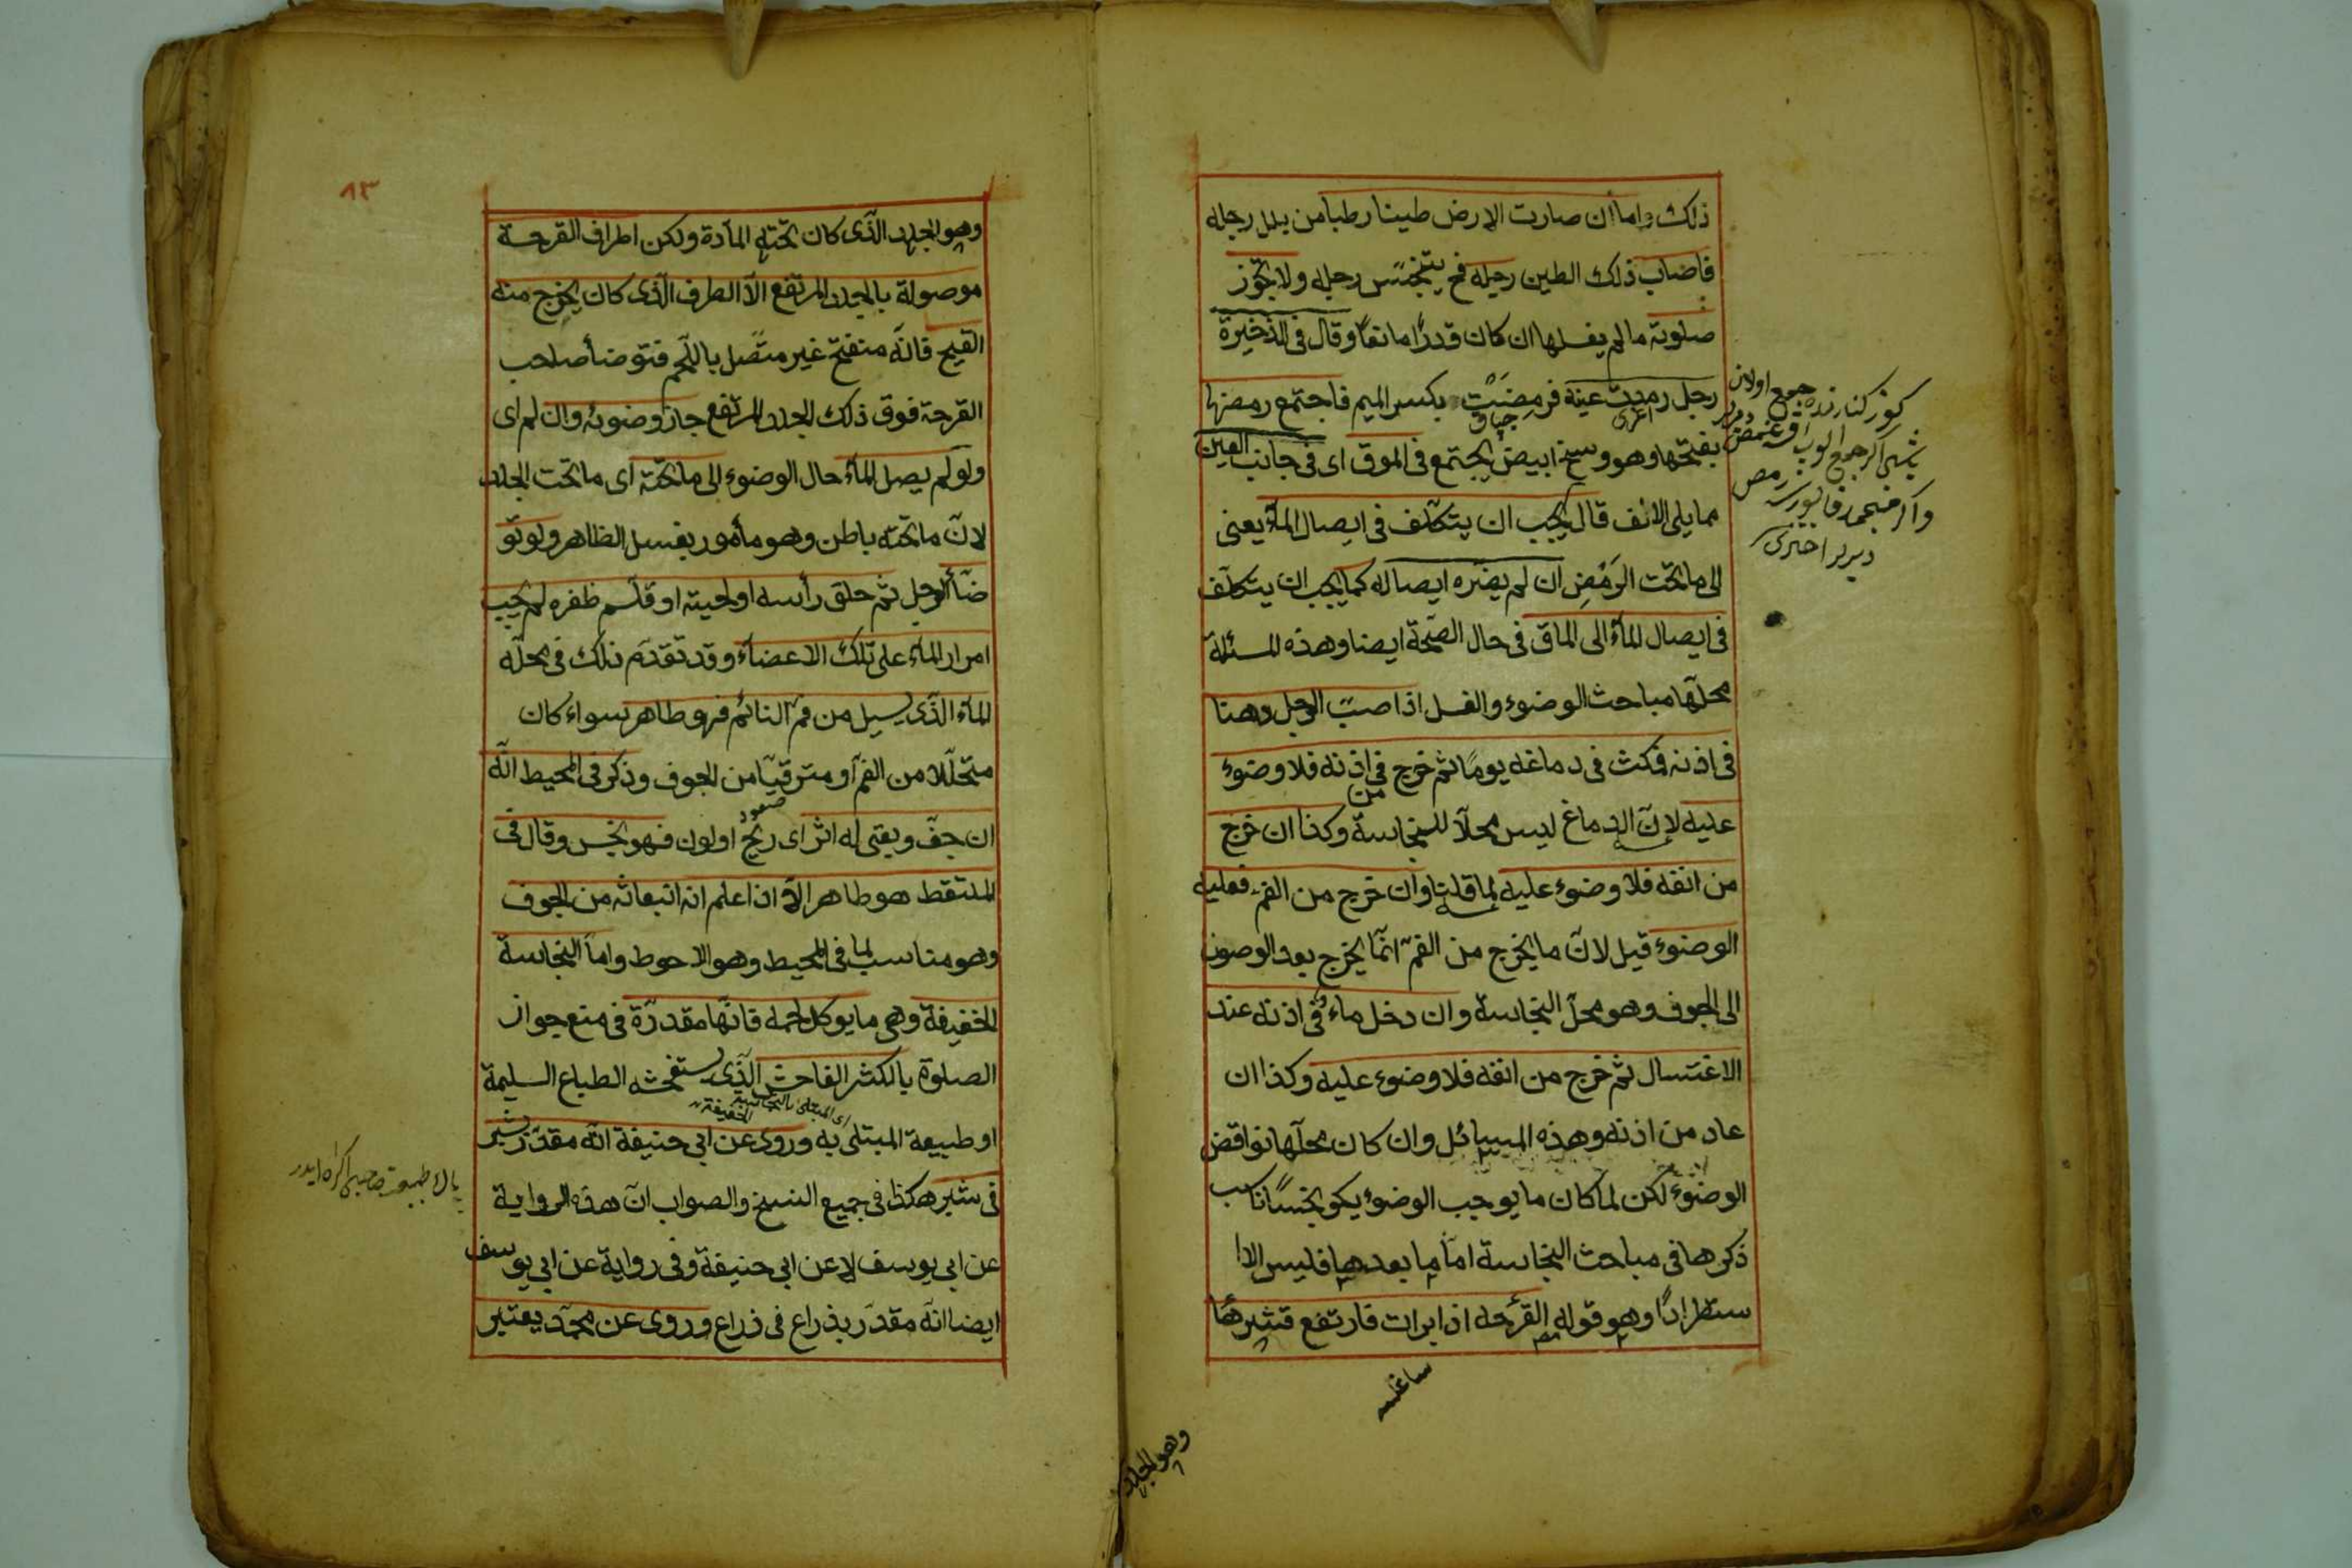 ذلك واما ان صارت الارض طينا رطبا من بلل رجله
فاصاب ذلك الطين رجله فح يتنجّس رجله ولا تجوز
صلوته ما لم يغسلها ان كان قدرًا مانعًا وقال فى الذخيرة
رجل رمدت عينه فرمِضَتْ بكسر الميم فاجتمع رمضها
بفتحها وهو وسخ ابيض يجتمع فى الموق اى فى جانب العين
مما يلى الانف قال يجب ان يتكلّف فى ايصال الماء يعنى
الى ما تحت الرَمَضِ ان لم يضره ايصاله كما يجب ان يتكلّف
فى ايصال الماء الى الماق فى حال الصّحة ايضا وهذه المسئلة
محلّها مباحث الوضوء والغسل اذا صبّ الرجل دهنا
فى اذنه فمكث فى دماغه يومًا ثم خرج فى اذنه فلا وضوء
من
عليه لانّ الدماغ ليس محلّا للنجاسة وكذا ان خرج
من انفه فلا وضوء عليه لما قلنا وان خرج من الفم فعليه
الوضوء قيل لانّ ما يخرج من الفمّ انّما يخرج بعد الوصول
الى الجوف وهو محلّ النجاسة وان دخل ماء فى اذنه عند
الاغتسال ثم خرج من انفه فلا وضوء عليه وكذا ان
عاد من اذنه وهذه المسائل وان كان محلّها نواقض
الوضوء لكن لما كان ما يوجب الوضوء يكو نجسًا ناسب
ذكرها فى مباحث النجاسة امّا ما بعدها فليس الا ا
ستطرادًا وهو قوله القرحه اذا برات فارتفع قشرها
جمع اولان
وهو الجلد
٨٣
وهو الجلد الّذى كان تحته المادة ولكن اطراف القرحة
موصولة بالجلد المرتفع الّا الطرف الّذى كان يخرج منه
القيح فانّه منفتح غير متّصل باللّحم فتوضأ صاحب
القرحة فوق ذلك الجلد المرتفع جاز وضوئه وان لم اى
ولو لم يصل الماء حال الوضوء الى ما تحته اى ما تحت الجلد
لانّ ما تحته باطن وهو مأمور بغسل الظاهر ولو تو
ضّأ الرجل ثم حلق رأسه او لحيته او قلّم ظفره لم يجب
امرار الماء على تلك الاعضاء وقد تقدّم ذلك فى محلّه
الماء الّذى يسيل من فمّ النائم فهو طاهر سواء كان
متحلّلا من الفمّ او مترقيّا من الجوف وذكر فى المحيط انّه
ان جفّ وبقى له اثر اى ريح او لون فهو نجس وقال فى
الملتقط هو طاهر الّا اذا علم انه انبعاثه من الجوف
وهو مناسب لما فى المحيط وهو الاحوط وامّا النجاسة
الخفيفة وهى ما يوكل لحمه فانّها مقدرّة فى منع جواز
الصلوة بالكثر الفاحش الّذى يستفحشه الطباع السليمة
اى المبتلى بالنجاسة الخفيفة
او طبيعة المبتلى به وروى عن ابى حنيفة انّه مقدّر بشبر
فى شبر هكذا فى جميع النسخ والصواب انّ هذه الرواية
عن ابى يوسف لا عن ابى حنيفة وفى رواية عن ابى يوسف
ايضا انّه مقدّر بذراع فى ذراع وروى عن محمّد يعتبر